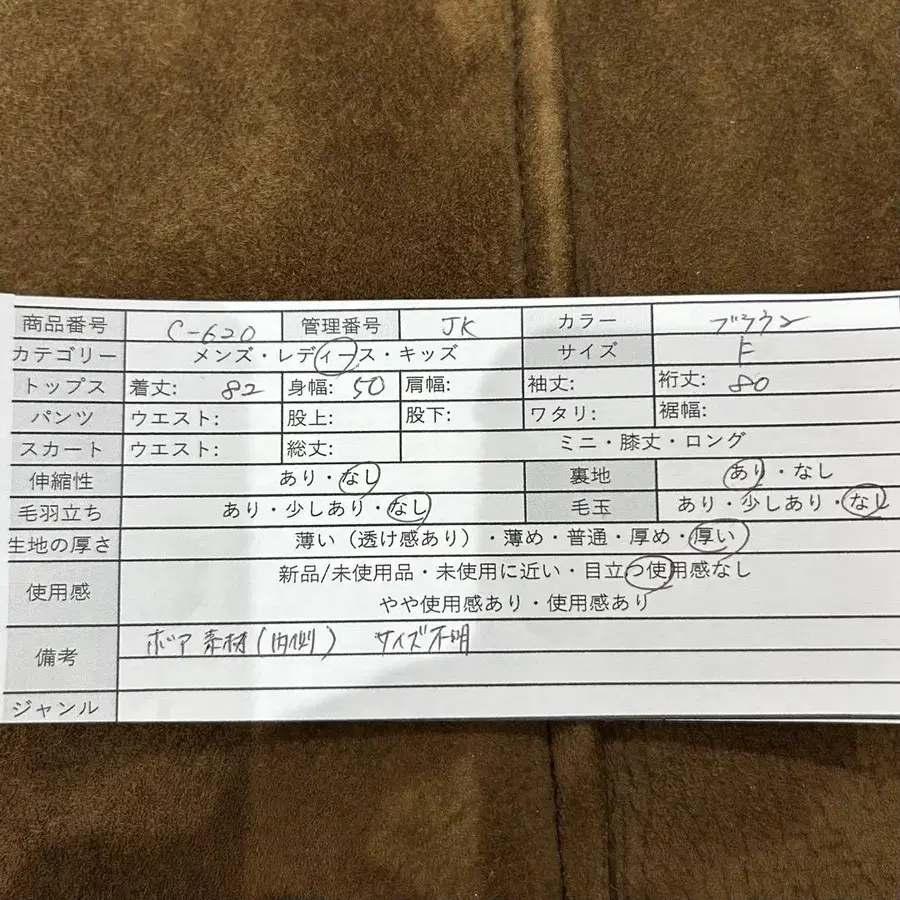 商品番号 C-620 管理番号 JK カラー ブラウン
カテゴリー メンズ・レディース・キッズ サイズ F
トップス 着丈: 82 身幅: 50 肩幅: 袖丈: 裄丈: 80
パンツ ウエスト: 股上: 股下: ワタリ: 裾幅:
スカート ウエスト: 総丈: ミニ・膝丈・ロング
伸縮性 あり・なし 裏地 あり・なし
毛羽立ち あり・少しあり・なし 毛玉 あり・少しあり・なし
生地の厚さ 薄い（透け感あり）・薄め・普通・厚め・厚い
使用感 新品/未使用品・未使用に近い・目立つ使用感なし
やや使用感あり・使用感あり
備考 ボア素材(内側) サイズ不明
ジャンル